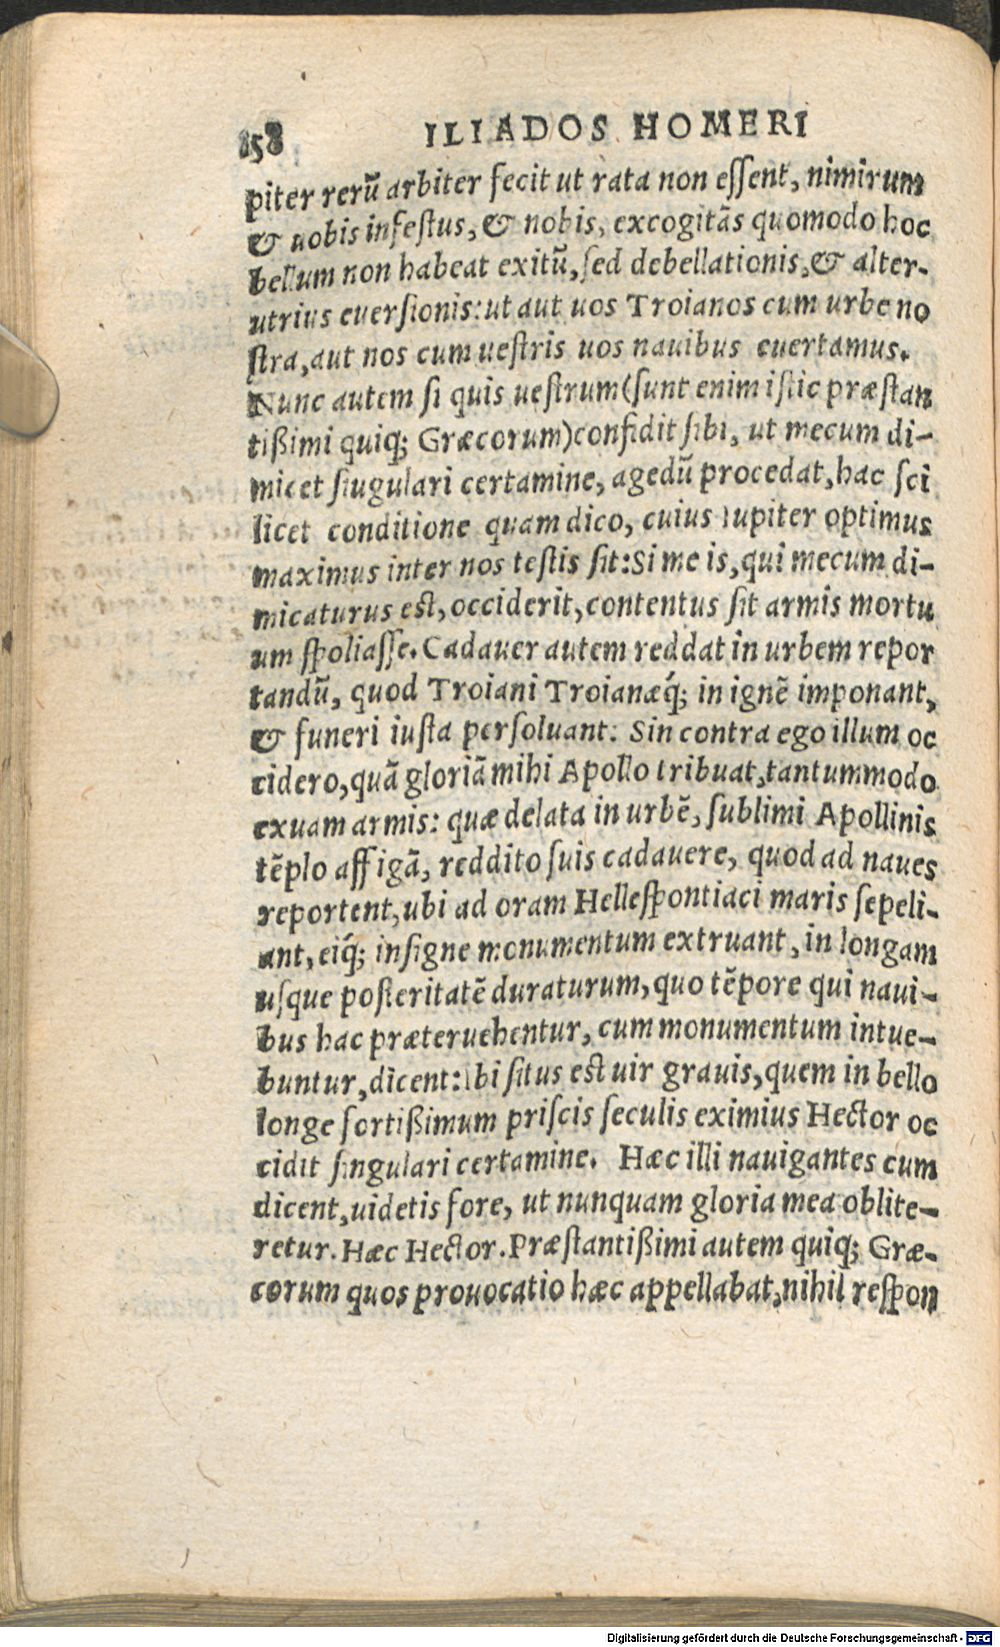 158 ILIADOS HOMERI
piter rerū arbiter fecit ut rata non essent, nimirum
& uobis infestus, & nobis, excogitās quomodo hoc
bellum non habeat exitū, sed debellationis, & alter-
utrius euersionis: ut aut uos Troianos cum urbe no
stra, aut nos cum uestris uos nauibus euertamus.
Nunc autem si quis uestrum (sunt enim istic præstan
tißimi quiq; Græcorum) confidit sibi, ut mecum di-
micet singulari certamine, agedū procedat, hac sci
licet conditione quam dico, cuius Iupiter optimus
maximus inter nos testis sit: Si me is, qui mecum di-
micaturus est, occiderit, contentus sit armis mortu
um spoliasse. Cadauer autem reddat in urbem repor
tandū, quod Troiani Troianæq́; in ignē imponant,
& funeri iusta persoluant. Sin contra ego illum oc
cidero, quā gloriā mihi Apollo tribuat, tantummodo
exuam armis: quæ delata in urbē, sublimi Apollinis
tēplo affigā, reddito suis cadauere, quod ad naues
reportent, ubi ad oram Hellespontiaci maris sepeli-
ant, eiq́; insigne monumentum extruant, in longam
usque posteritatē duraturum, quo tēpore qui naui-
bus hac præteruehentur, cum monumentum intue-
buntur, dicent: Ibi situs est uir grauis, quem in bello
longe fortißimum priscis seculis eximius Hector oc
cidit singulari certamine. Hæc illi nauigantes cum
dicent, uidetis fore, ut nunquam gloria mea oblite-
retur. Hæc Hector. Præstantißimi autem quiq; Græ-
corum quos prouocatio hæc appellabat, nihil respon
Digitalisierung gefördert durch die Deutsche Forschungsgemeinschaft - DFG